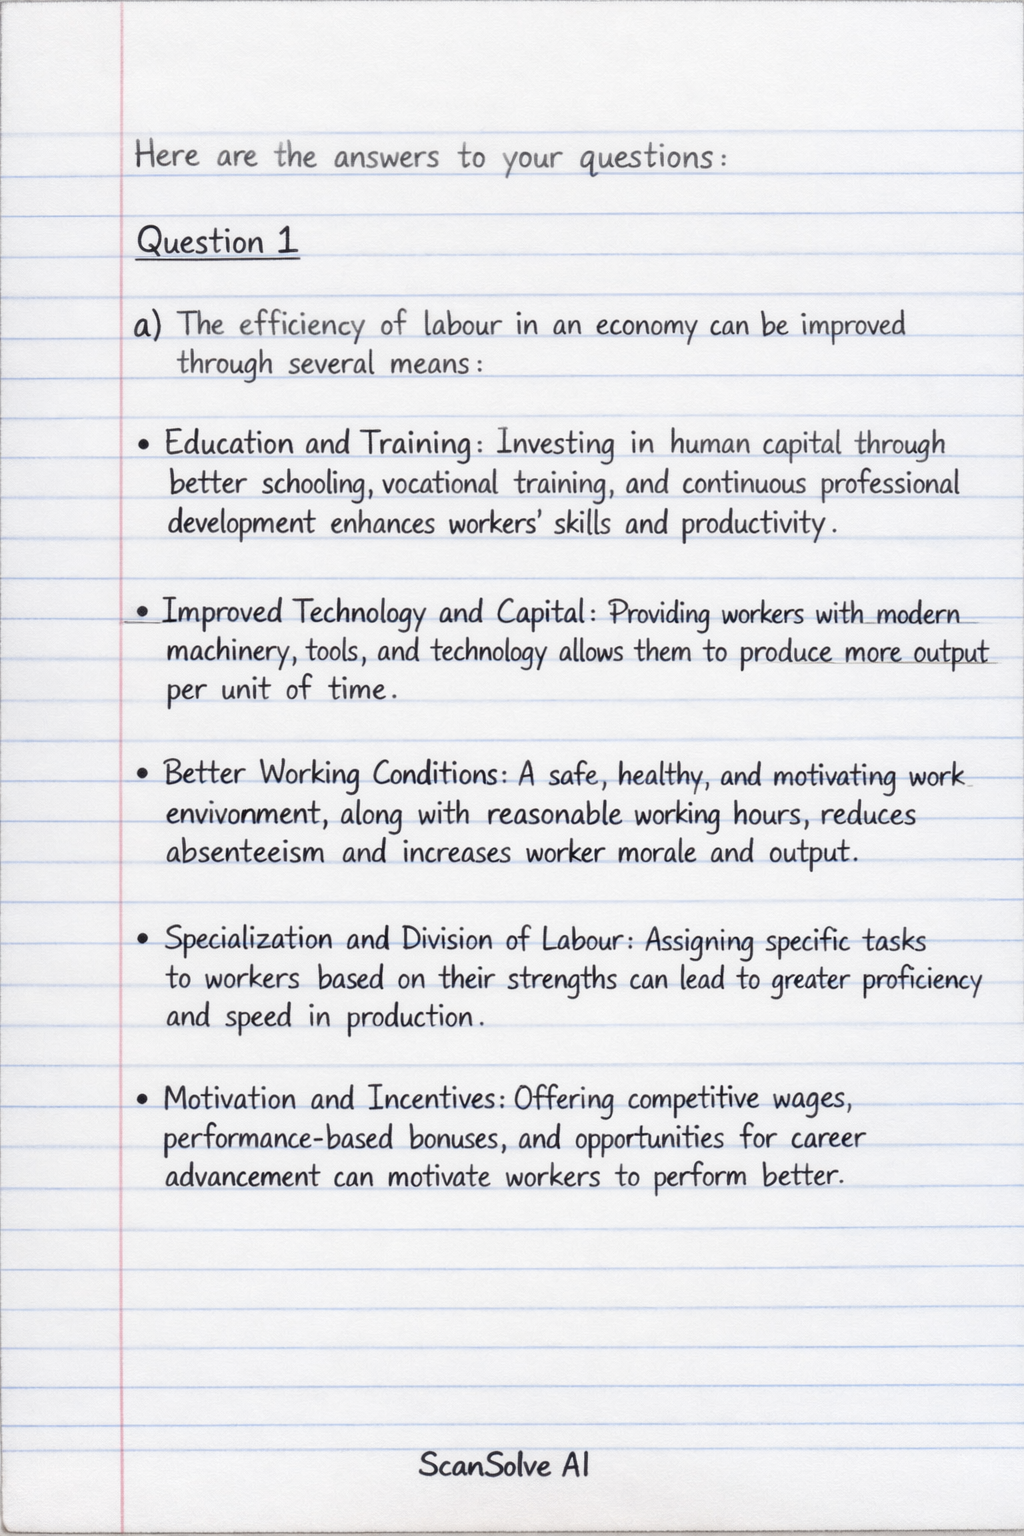 Here are the answers to your questions:
Question 1
a) The efficiency of labour in an economy can be improved
through several means:
• Education and Training: Investing in human capital through
better schooling, vocational training, and continuous professional
development enhances workers' skills and productivity.
• Improved Technology and Capital: Providing workers with modern
machinery, tools, and technology allows them to produce more output
per unit of time.
• Better Working Conditions: A safe, healthy, and motivating work
envivonment, along with reasonable working hours, reduces
absenteeism and increases worker morale and output.
• Specialization and Division of Labour: Assigning specific tasks
to workers based on their strengths can lead to greater proficiency
and speed in production.
• Motivation and Incentives: Offering competitive wages,
performance-based bonuses, and opportunities for career
advancement can motivate workers to perform better.
ScanSolve AI